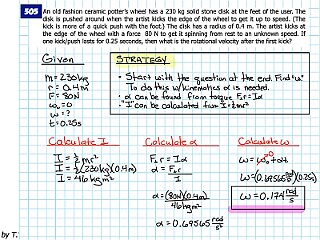 505 An old fashion ceramic potter's wheel has a 230 kg solid stone disk at the feet of the user. The
disk is pushed around when the artist kicks the edge of the wheel to get it up to speed. (The
kick is more of a quick push with the foot.) The disk has a radius of 0.4 m. The artist kicks at
the edge of the wheel with a force 80 N to get it spinning from rest to an unknown speed. If
one kick/push lasts for 0.25 seconds, then what is the rotational velocity after the first kick?
Given
m=230kg
r=0.4m
F=80N
ω₀=0
ω=?
t=0.25s
STRATEGY
• Start with the question at the end. Find "ω"
To do this w/kinematics α is needed.
• α can be found from torque F⊥r=Iα
• "I" can be calculated from I=½mr²
Calculate I
I=½mr²
I=½(230kg)(0.4m)
I=46kgm²
Calculate α
F⊥r=Iα
α=F⊥r/I
α=(80N)(0.4m)/46kgm²
α=0.69565 rad/s²
Calculate ω
ω=ω₀+αt
ω=(0.69565 rad/s²)(0.25s)
ω=0.174 rad/s
by T.